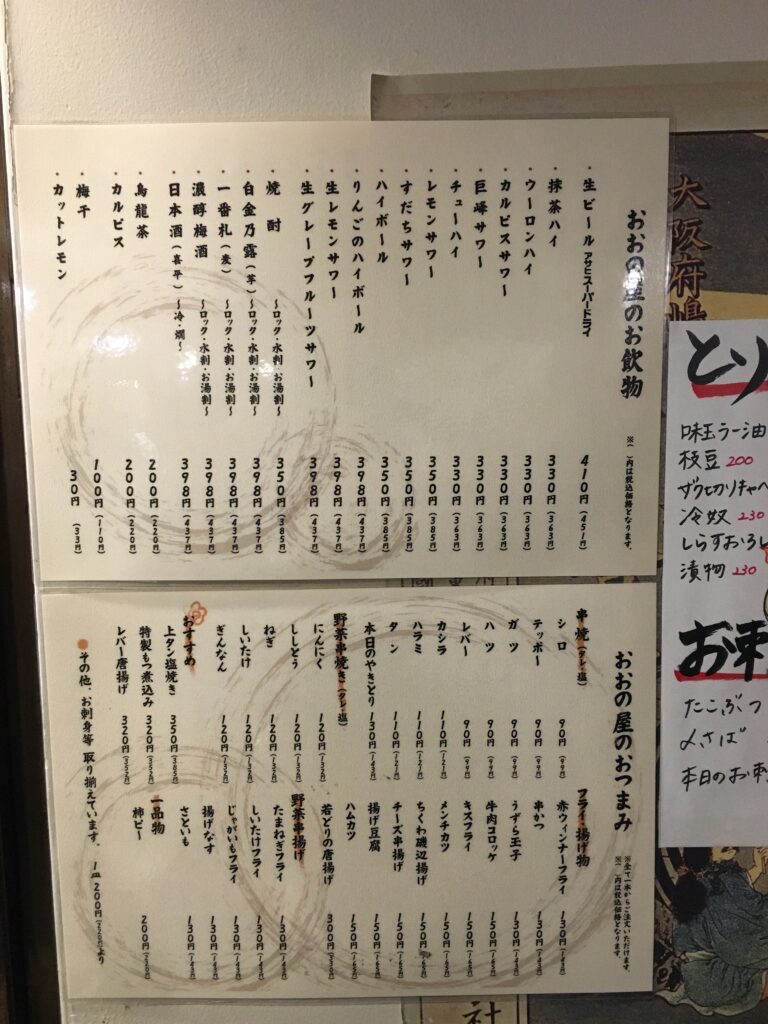 おおの屋のお飲物
※( )内は税込価格となります。
・生ビール アサヒスーパードライ 410円(451円)
・抹茶ハイ 330円(363円)
・ウーロンハイ 330円(363円)
・カルピスサワー 330円(363円)
・巨峰サワー 330円(363円)
・チューハイ 330円(363円)
・レモンサワー 350円(385円)
・すだちサワー 350円(385円)
・ハイボール 350円(385円)
・りんごのハイボール 398円(437円)
・生レモンサワー 398円(437円)
・生グレープフルーツサワー 398円(437円)
・焼酎 〜ロック・水割・お湯割〜 350円(385円)
・白金乃露(芋) 〜ロック・水割・お湯割〜 398円(437円)
・一番札(麦) 〜ロック・水割・お湯割〜 398円(437円)
・濃醇梅酒 〜ロック・水割・お湯割〜 398円(437円)
・日本酒(喜平) 〜冷・燗〜 398円(437円)
・烏龍茶 200円(220円)
・カルピス 200円(220円)
・梅干 100円(110円)
・カットレモン 30円(33円)
おおの屋のおつまみ
※全て一本からご注文いただけます。
※( )内は税込価格となります。
串焼(タレ・塩)
シロ 90円(99円)
テッポー 90円(99円)
ガツ 90円(99円)
ハツ 90円(99円)
レバー 90円(99円)
カシラ 110円(121円)
ハラミ 110円(121円)
タン 110円(121円)
本日のやきとり 130円(143円)
野菜串焼き(タレ・塩)
にんにく 120円(132円)
ししとう 120円(132円)
ねぎ 120円(132円)
しいたけ 120円(132円)
ぎんなん 120円(132円)
おすすめ
上タン塩焼き 350円(385円)
特製もつ煮込み 320円(352円)
レバー唐揚げ 320円(352円)
フライ・揚げ物
赤ウィンナーフライ 130円(143円)
串かつ 130円(143円)
うずら玉子 130円(143円)
牛肉コロッケ 150円(165円)
キスフライ 150円(165円)
メンチカツ 150円(165円)
ちくわ磯辺揚げ 150円(165円)
チーズ串揚げ 150円(165円)
揚げ豆腐 150円(165円)
ハムカツ 150円(165円)
若どりの唐揚げ 300円(330円)
野菜串揚げ
たまねぎフライ 130円(143円)
しいたけフライ 130円(143円)
じゃがいもフライ 130円(143円)
揚げなす 130円(143円)
さといも 130円(143円)
一品物
柿ピー 200円(220円)
その他、お刺身等 取り揃えています。 1皿200円(220円)より
大阪府嶋
とり
味玉ラー油
枝豆 200
ザク切りキャベ
冷奴 230
しらすおろし
漬物 230
お刺
たこぶつ
〆さば
本日のお刺
社